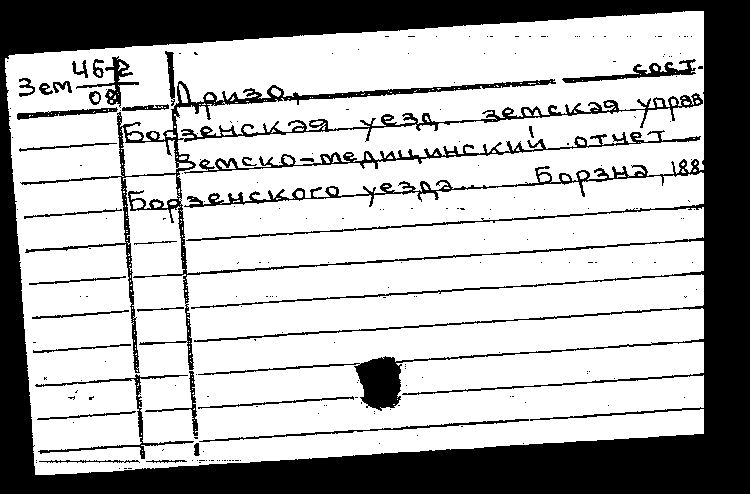 Зем 46-2
08
Дризо, сост.
Борзенская уезд. земская управ
Земско-медицинский отчет
Борзенского уезда... Борзна, 188